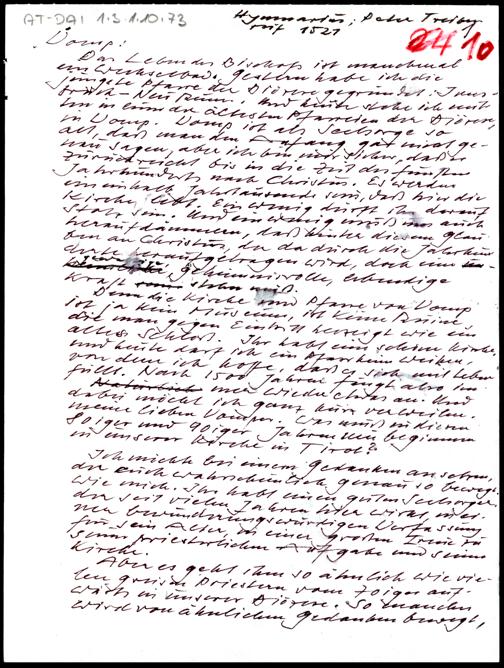 AT-DAI 1.3.1.10.73
Hymnarius; Peter Treiber
seit 1521
24 10
Vomp:
Das Leben des Bischofs ist manchmal
ein Wechselbad. Gestern habe ich die
jüngste Pfarre der Diözese gegründet: Inns-
bruck-Neu Rum. Und heute stehe ich mit-
ten in einer der ältesten Pfarreien der Diözese,
in Vomp. Vomp ist als Seelsorge so
alt, daß man den Anfang gar nicht ge-
nau sagen, aber ich bin mir sicher, daß er
zurückreicht bis in die Zeit des fünften
Jahrhunderts nach Christus. Es werden
eineinhalb Jahrtausende sein, daß hier die
Kirche lebt. Ein wenig dürft ihr darauf
stolz sein. Und ein wenig muß uns auch
heraufdämmern, daß hinter diesem Glau-
ben an Christus, der da durch die Jahrhun-
derte heraufgetragen wird, doch eine
geheimnisvolle, lebendige
Kraft stehn muß.
Denn die Kirche und Pfarre von Vomp
ist ja kein Museum, ist keine Ruine,
die man gegen Eintritt besteigt wie ein
altes Schloß. Ihr habt eine schöne Kirche,
und heute darf ich ein Pfarrheim weihen,
von dem ich hoffe, daß es sich mit Leben
füllt. Nach 1500 Jahren fängt also im
immer wieder etwas an. Und
dabei möcht ich ganz kurz verweilen.
meine lieben Vomper. Was muß in diesen
80iger und 90iger Jahren beginnen
in unserer Kirche in Tirol?
Ich möchte bei einem Gedanken ansetzen,
der euch wahrscheinlich genau so bewegt
wie mich. Ihr habt einen guten Seelsorger,
der seit vielen Jahren hier wirkt,
bewundrungswürdigen Verfassung
für sein Alter, in einer großen Treue zu
seiner priesterlichen Aufgabe und seiner
Kirche.
Aber es geht ihm so ähnlich wie vie-
len greisen Priestern vom 70iger auf-
wärts in unserer Diözese. So mancher
wird von ähnlichen Gedanken bewegt,